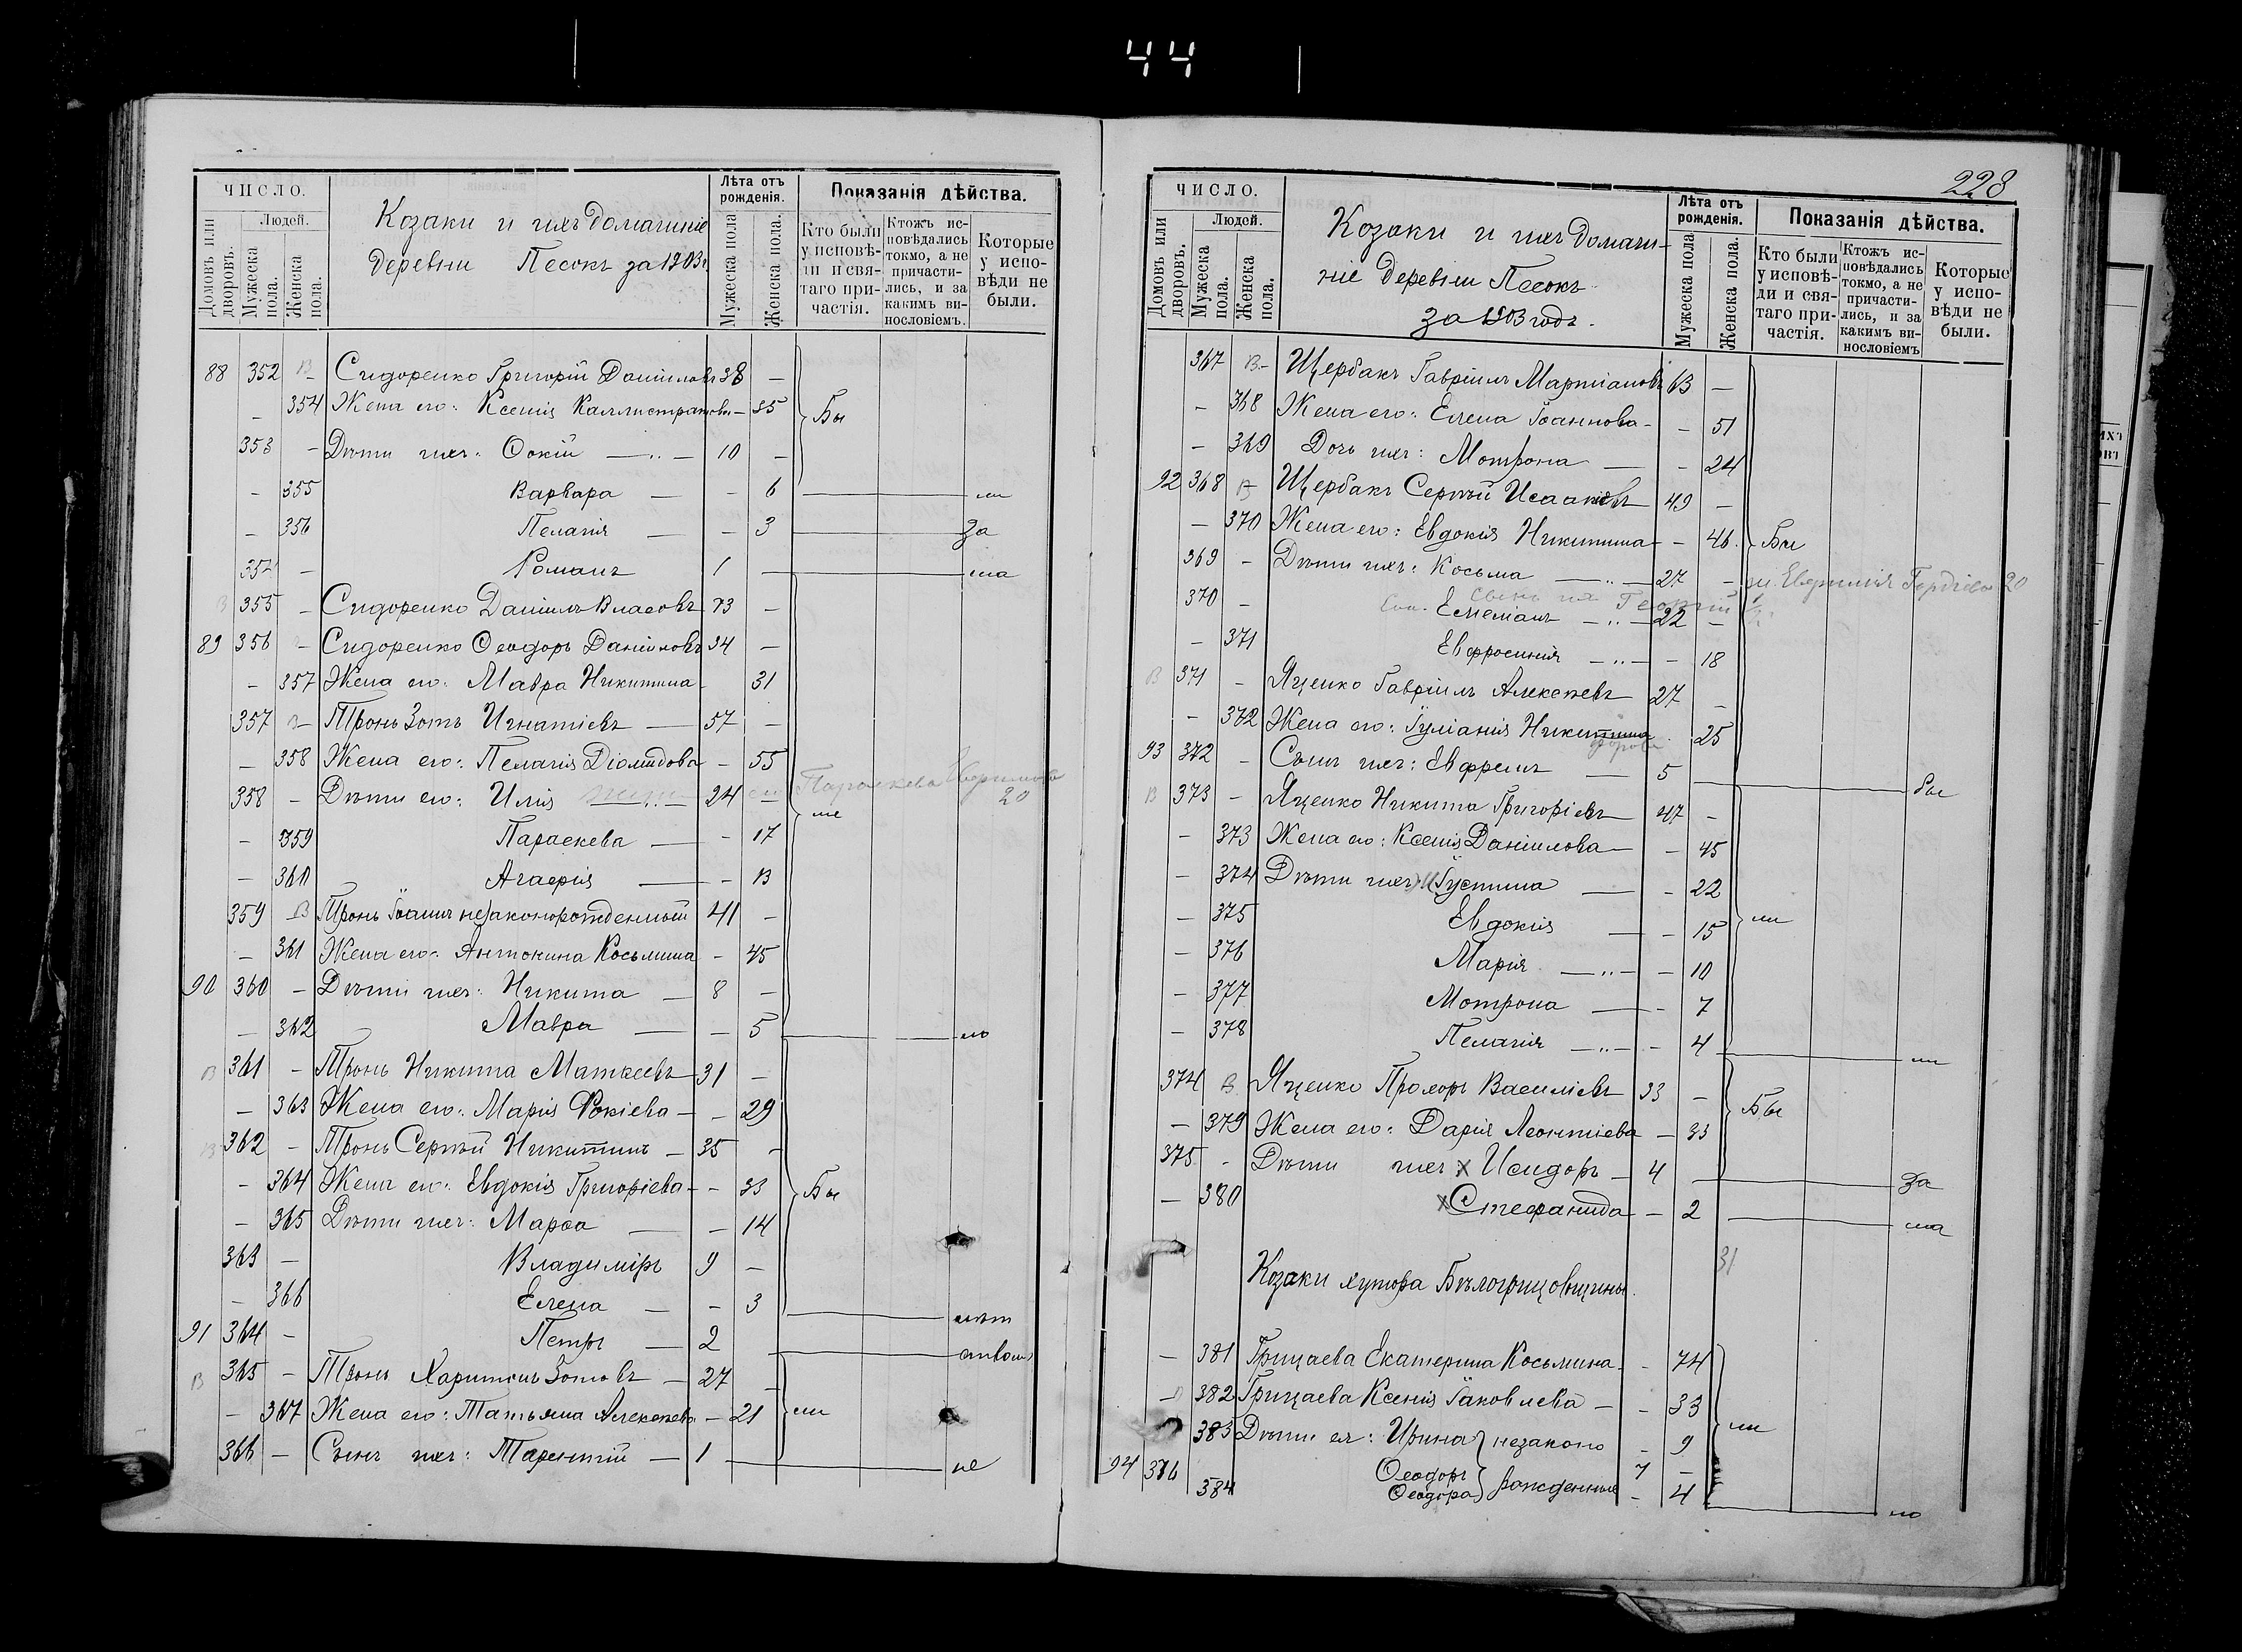 44
ЧИСЛО.
Домовъ или дворовъ.
Людей.
Мужеска пола.
Женска пола.
Козаки и ихъ домашніе
деревни Песокъ за 1903 г.
Лѣта отъ рожденія.
Мужеска пола
Женска пола.
Показанія дѣйства.
Кто были у исповѣди и святаго причастія.
Ктожъ исповѣдались токмо, а не причастились, и за какимъ винословіемъ.
Которые у исповѣди не были.
88 352 В – Сидоренко Григорій Даніиловъ 38 –
– 354 Жена его: Ксенія Каллистратова – 35 Бы
353 – Дѣти ихъ: Ѳокій – „ – 10 –
– 355 Варвара – – 6 – ли
– 356 Пелагія – – 3 – за
354 – Романъ 1 – ма
В 355 – Сидоренко Даніилъ Власовъ 73 –
89 356 – Сидоренко Ѳеодоръ Даніиловъ 34 –
– 357 Жена его: Мавра Никитина 31
357 В – Тронь Зотъ Игнатіевъ – 57 –
– 358 Жена его: Пелагія Діомидова – 55
358 – Дѣти его: Илія – „ – 24 – Параскева Евфимова 20
ли
– 359 Параскева – – 17
– 360 Агафія – – 13
359 В Тронь Іоаннъ незаконорожденный 41 –
– 361 Жена его: Антонина Косьмина – 45
90 360 – Дѣти ихъ: Никита – 8 –
– 362 Мавра – – 5 – ло
В 361 – Тронь Никита Матвеевъ 31 –
– 363 Жена его: Марія Фокіева – – 29
В 362 – Тронь Сергѣй Никитинъ – 35 –
– 364 Жена его: Евдокія Григоріева – – 33 Бы
– 365 Дѣти ихъ: Марѳа – – 14
363 – Владиміръ 9 –
– 366 Елена – – 3 – лѣт
91 364 – Петръ – 2 – ством
В 365 – Тронь Харитонъ Зотовъ – 27 –
– 367 Жена его: Татьяна Алексѣева – 21 ли
366 – Сынъ ихъ: Терентій – 1 – не
228
ЧИСЛО.
Домовъ или дворовъ.
Людей.
Мужеска пола.
Женска пола.
Козаки и ихъ домаш-
ніе деревни Песокъ
за 1903 годъ.
Лѣта отъ рожденія.
Мужеска пола
Женска пола.
Показанія дѣйства.
Кто были у исповѣди и святаго причастія.
Ктожъ исповѣдались токмо, а не причастились, и за какимъ винословіемъ
Которые у исповѣди не были.
367 В – Щербакъ Гавріилъ Мартіановъ 63 –
– 368 Жена его: Елена Іоаннова – – 51
– 369 Дочь ихъ: Мотрона – – 24
92 368 В Щербакъ Сергѣй Исааковъ 49 –
– 370 Жена его: Евдокія Никитина – – 46 Бы
369 – Дѣти ихъ: Косьма – „ – 27 – ж. Евфимія Гордіева 20
сынъ их Георгій 1/2
370 – Емеліанъ – „ – 22 –
– 371 Евфросинія – „ – – 18
В 371 – Яценко Гавріилъ Алексѣевъ 27 –
– 372 Жена его: Іуліанія Никитина 25
93 372 – Сынъ ихъ: Евфремъ – 5 – бы
В 373 – Яценко Никита Григоріевъ 47 –
– 373 Жена его: Ксенія Даніилова – – 45
– 374 Дѣти ихъ: Іустина – – 22
– 375 Евдокія – – 15 ли
– 376 Марія – „ – – 10
– 377 Мотрона – – 7
– 378 Пелагія – „ – – 4 – ли
374 В Яценко Прохоръ Василіевъ 33 –
– 379 Жена его: Дарія Леонтіева – 33 Бы
375 – Дѣти ихъ х Исидоръ – 4 – за
– 380 х Стефанида – 2 – ма
31
Козаки хутора Бѣлогрицовщины.
– 381 Грицаева Екатерина Косьмина – – 74
– 382 Грицаева Ксенія Іаковлева – – 33
383 Дѣти ея: Ирина незаконо – 9 ли
94 376 Ѳеодоръ рожденные 7 –
384 Ѳеодора – 4 – ло